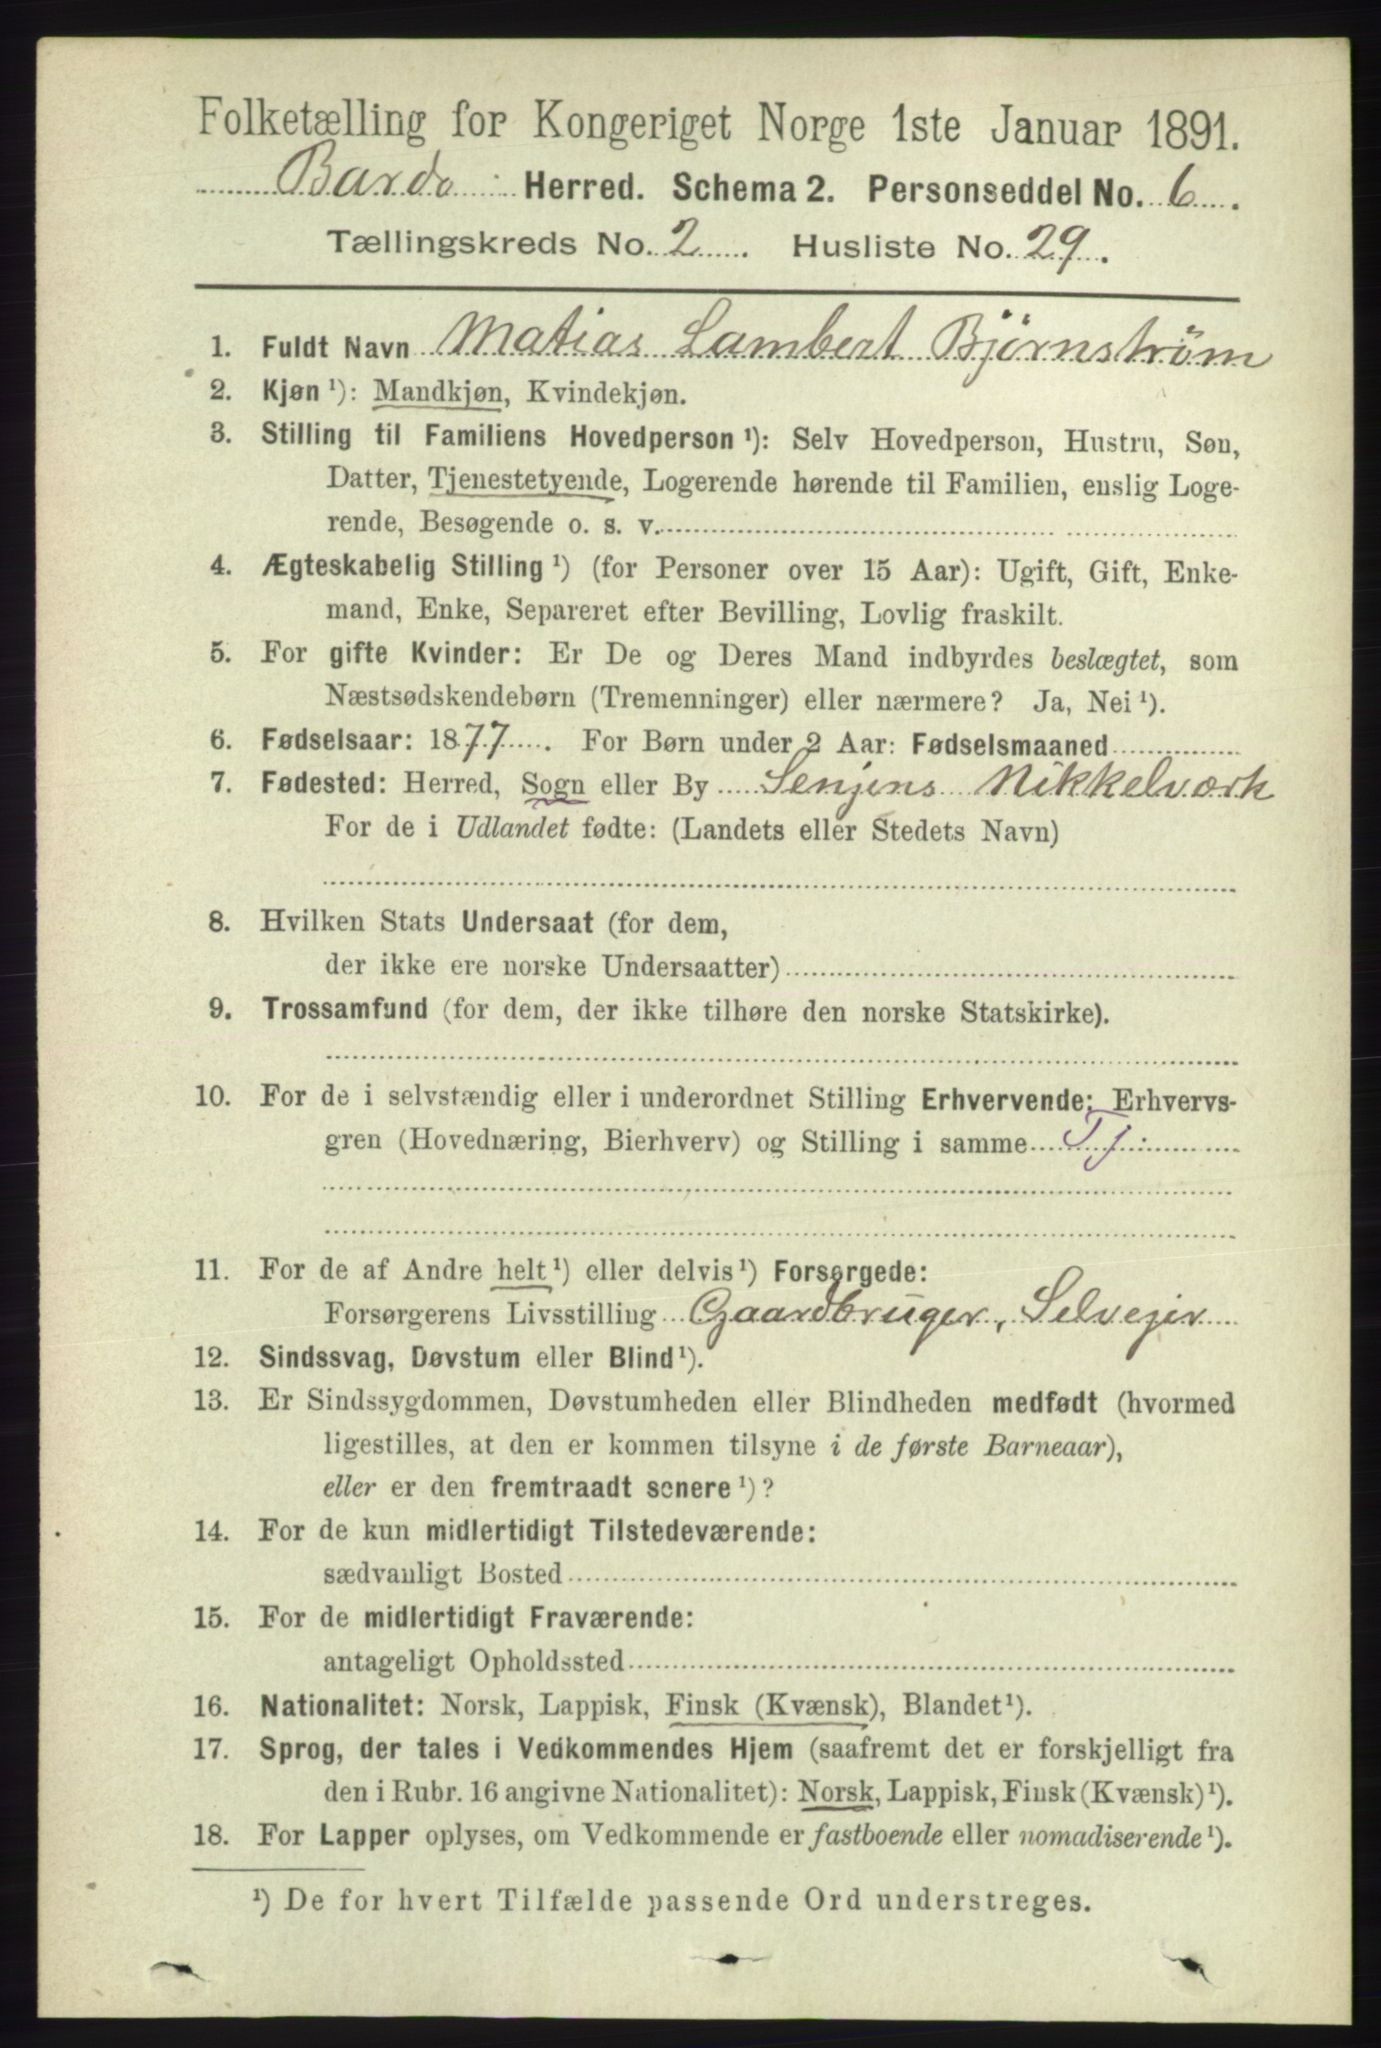 Folketælling for Kongeriget Norge 1ste Januar 1891.
Bardo Herred. Schema 2. Personseddel No. 6.
Tællingskreds No. 2. Husliste No. 29.
1. Fuldt Navn Matias Lambert Bjørnstrøm
2. Kjøn ¹): Mandkjøn, Kvindekjøn.
3. Stilling til Familiens Hovedperson ¹): Selv Hovedperson, Hustru, Søn,
Datter, Tjenestetyende, Logerende hørende til Familien, enslig Loge-
rende, Besøgende o. s. v.
4. Ægteskabelig Stilling ¹) (for Personer over 15 Aar): Ugift, Gift, Enke-
mand, Enke, Separeret efter Bevilling, Lovlig fraskilt.
5. For gifte Kvinder: Er De og Deres Mand indbyrdes beslægtet, som
Næstsødskendebørn (Tremenninger) eller nærmere? Ja, Nei ¹).
6. Fødselsaar: 1877. For Børn under 2 Aar: Fødselsmaaned
7. Fødested: Herred, Sogn eller By Senjens Nikkelværk
For de i Udlandet fødte: (Landets eller Stedets Navn)
8. Hvilken Stats Undersaat (for dem,
der ikke ere norske Undersaatter)
9. Trossamfund (for dem, der ikke tilhøre den norske Statskirke).
10. For de i selvstændig eller i underordnet Stilling Erhvervende: Erhvervs-
gren (Hovednæring, Bierhverv) og Stilling i samme Tj:
11. For de af Andre helt ¹) eller delvis ¹) Forsørgede:
Forsørgerens Livsstilling Gaardbruger, Selvejer
12. Sindssvag, Døvstum eller Blind ¹).
13. Er Sindssygdommen, Døvstumheden eller Blindheden medfødt (hvormed
ligestilles, at den er kommen tilsyne i de første Barneaar),
eller er den fremtraadt senere ¹)?
14. For de kun midlertidigt Tilstedeværende:
sædvanligt Bosted
15. For de midlertidigt Fraværende:
antageligt Opholdssted
16. Nationalitet: Norsk, Lappisk, Finsk (Kvænsk), Blandet ¹).
17. Sprog, der tales i Vedkommendes Hjem (saafremt det er forskjelligt fra
den i Rubr. 16 angivne Nationalitet): Norsk, Lappisk, Finsk (Kvænsk) ¹).
18. For Lapper oplyses, om Vedkommende er fastboende eller nomadiserende ¹).
¹) De for hvert Tilfælde passende Ord understreges.